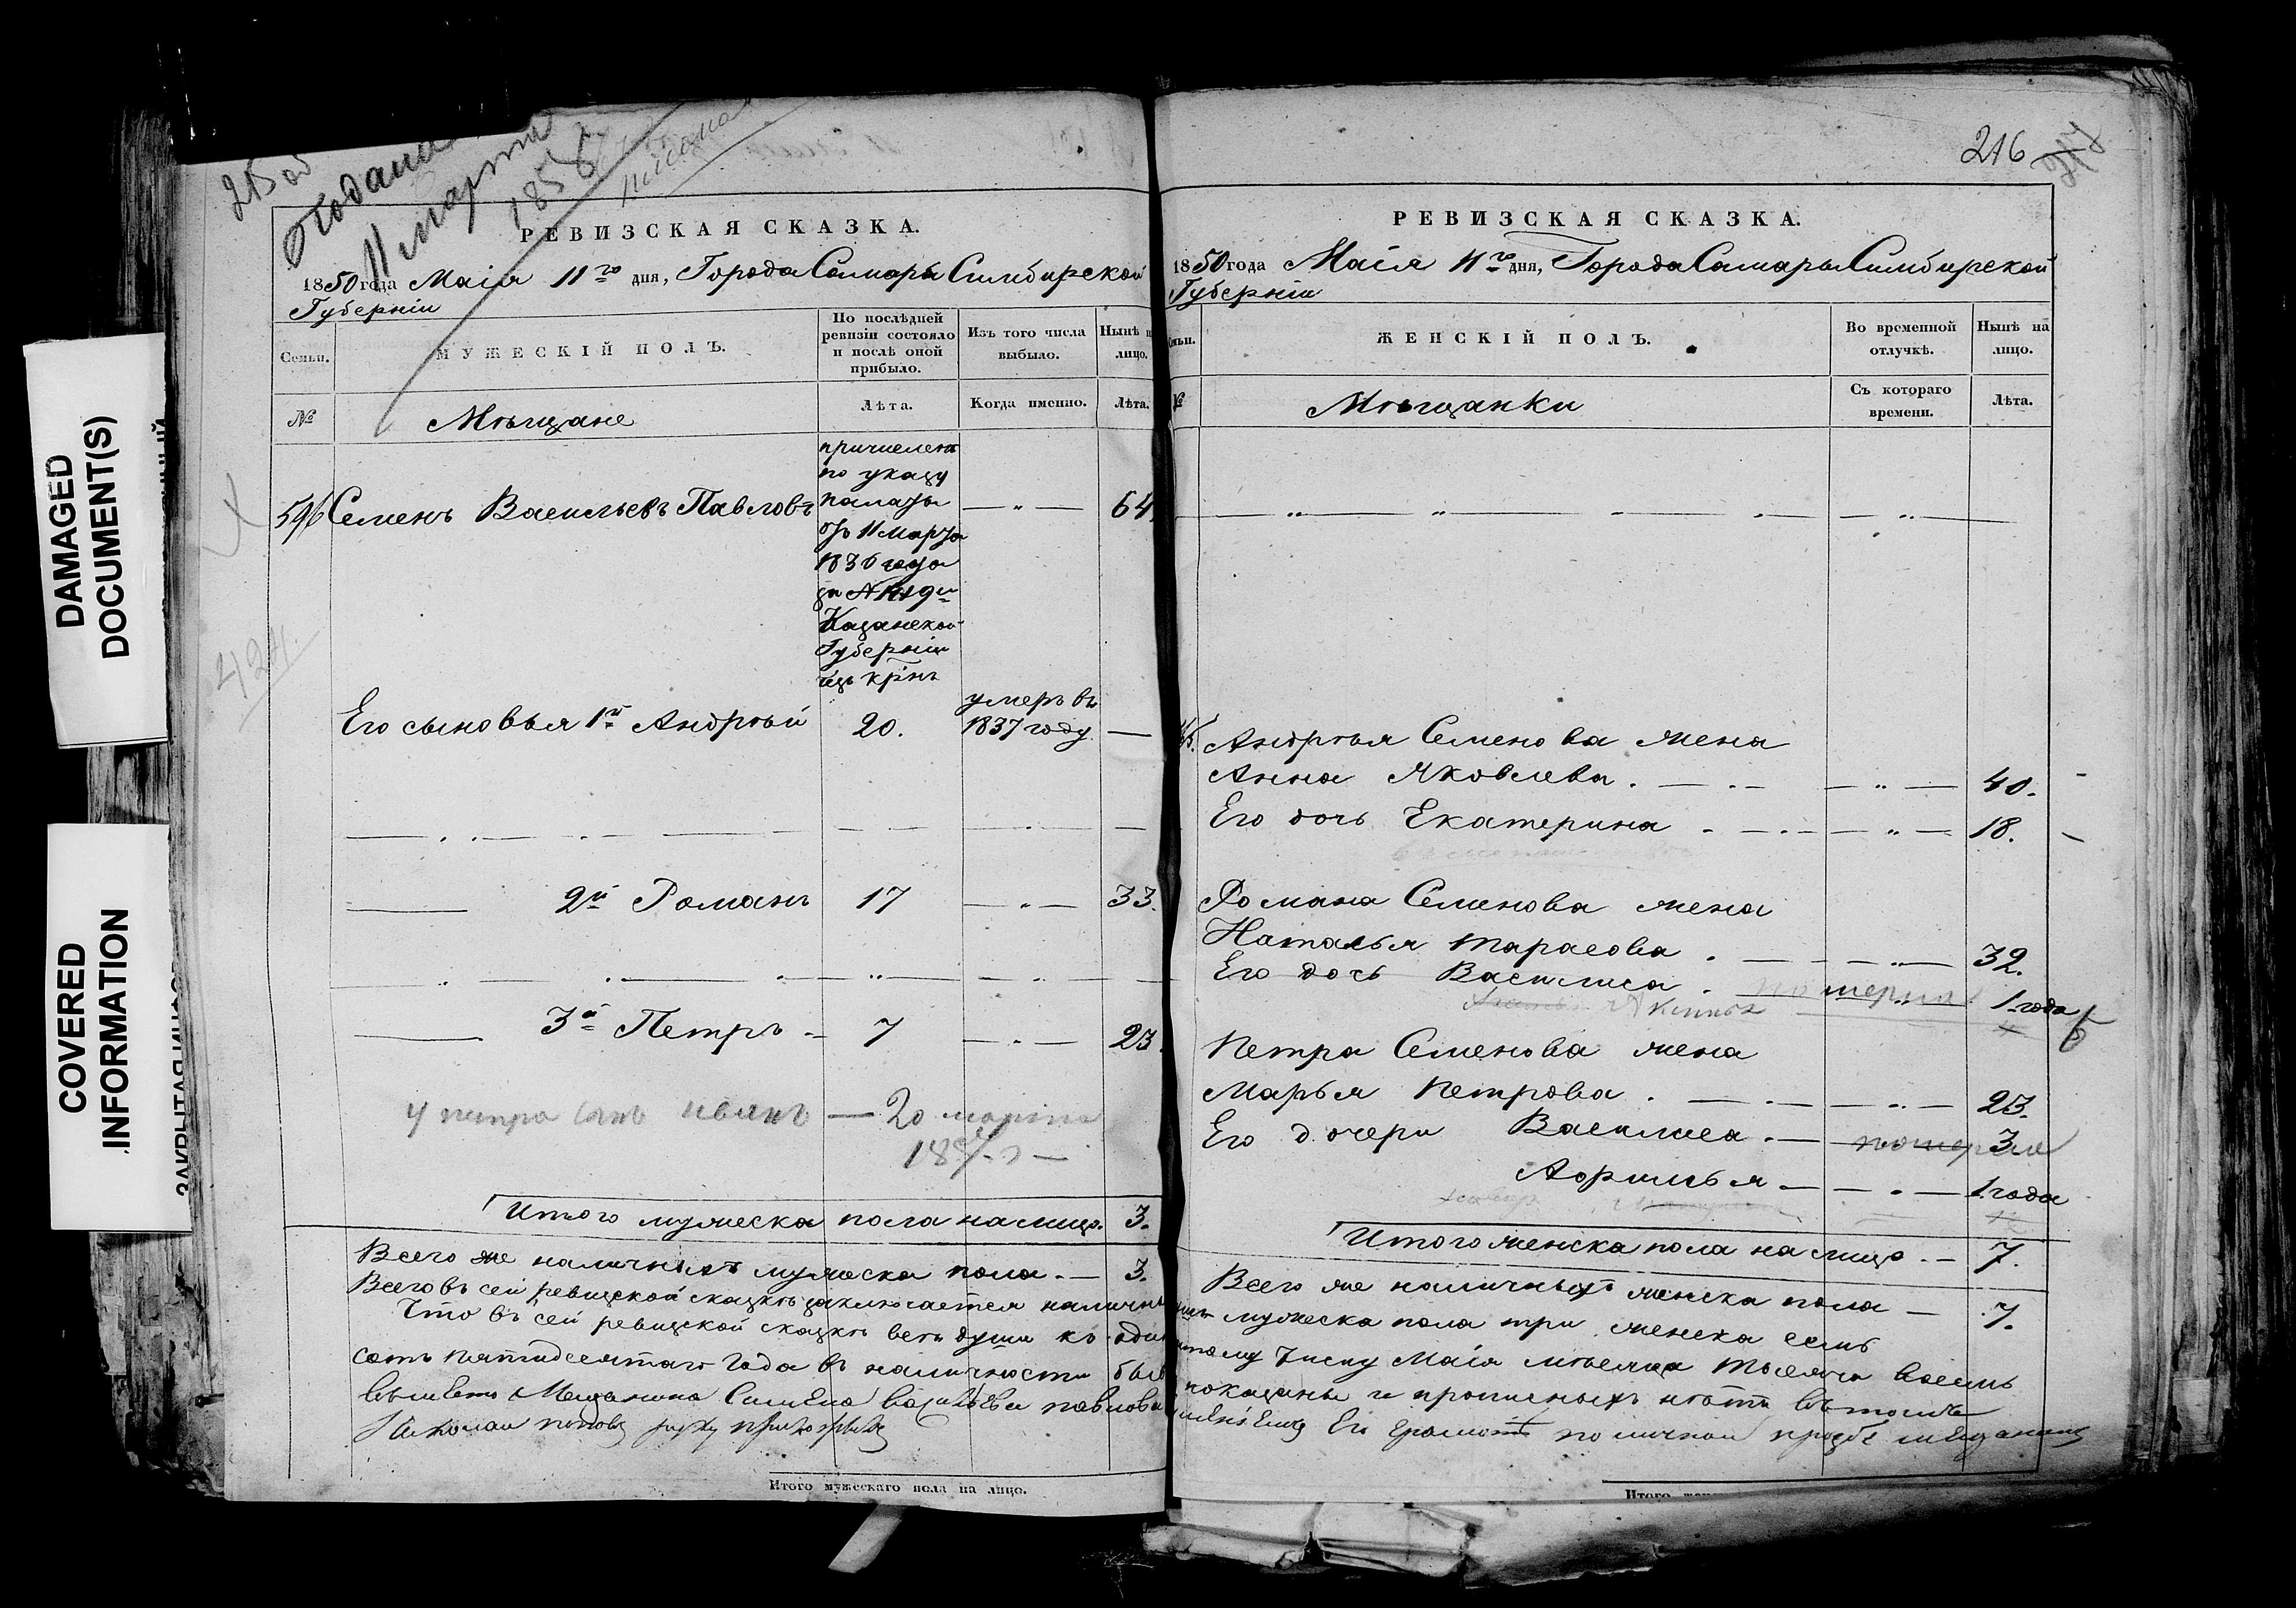 DAMAGED
DOCUMENT(S)
COVERED
INFORMATION
215 об
Подана
11 марта
1858
216
РЕВИЗСКАЯ СКАЗКА.
1850 года Маія 11го дня, Города Самары Симбирской
Губерніи
Семьи.
МУЖЕСКІЙ ПОЛЪ.
По послѣдней
ревизіи состояло
и послѣ оной
прибыло.
Изъ того числа
выбыло.
Нынѣ н
лицо.
№
Мѣщане
Лѣта.
Когда именно.
Лѣта.
424.
596 Семенъ Васильевъ Павловъ
причисленъ
по указу
палаты
отъ 11 Марта
1836 года
за №
Казанской
Губерніи
изъ крнъ
— „ — 64.
Его сыновья 1й Андрѣй 20. умеръ въ
1837 году —
2й Романъ 17 — „ — 33.
3й Петръ - 7 — „ — 23.
у петра сынъ иванъ — 20 марта
Итого мужеска пола на лицо. 3.
Всего же наличныхъ мужеска пола. — 3.
Всего въ сей ревизской сказкѣ заключается наличн
Что въ сей ревизской сказкѣ всѣ души къ один
сотъ пятидесятаго года въ наличности был
Мещанина Симена Васильева павлова
Николаи попов руку приложилъ
Итого мужескаго пола на лицо.
РЕВИЗСКАЯ СКАЗКА.
1850 года Маія 11го дня, Города Самары Симбирской
Губерніи
ЖЕНСКІЙ ПОЛЪ.
Во временной
отлучкѣ.
Нынѣ на
лицо.
№
Мѣщанки
Съ котораго
времени.
Лѣта.
Андрѣя Семенова жена
Анна Яковлева. — „ — 40.
Его дочь Екатерина. — „ — 18.
Романа Семенова жена
Наталья Тарасова. — „ — 32.
Его дочь Василиса. померла 1 года
Петра Семенова жена
Марья Петрова. — „ — 23.
Его дочери Василиса. — померла 3
Априлья — „ — 1 года
Итого женска пола на лицо. — 7.
Всего же наличныхъ женска пола — 7.
мужеска пола три женска семь
Числу Маія мѣсяца тысяча восемь
показаны и прописныхъ нѣтъ въ томъ
Его грамотѣ по личной прозбѣ мещанинъ